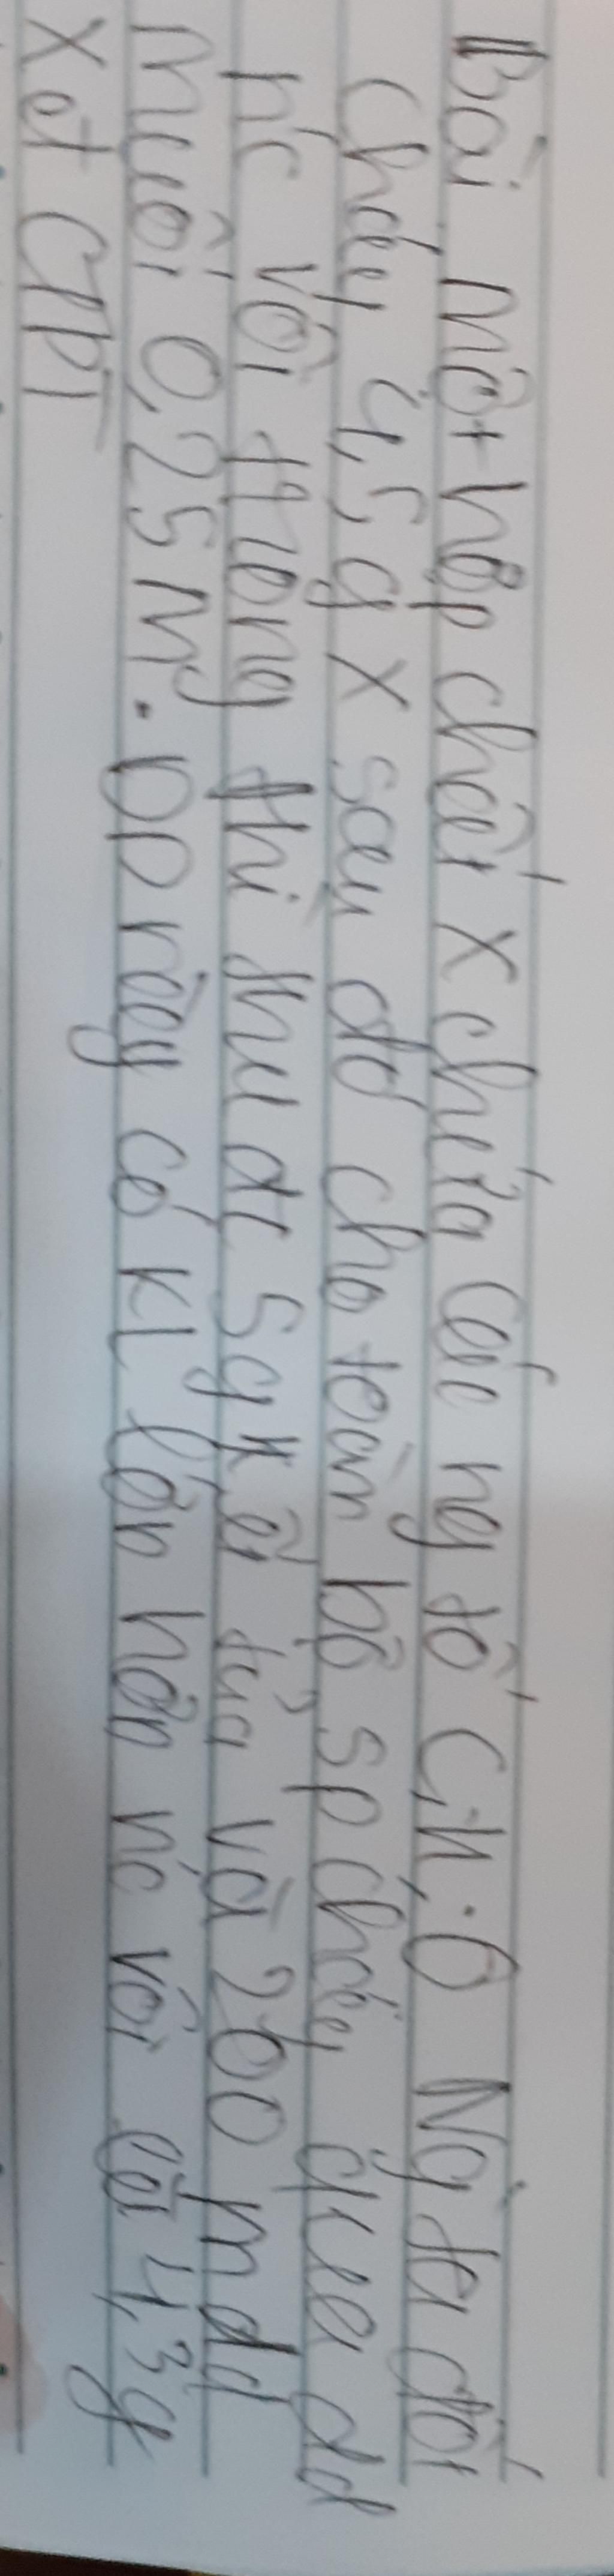 Bài một hợp chất X chứa các ng tố C, H, O Ng ta đốt
cháy 4,5g X sau đó cho toàn bộ sp cháy qua dd
nc vôi trong thì thu đc 5g kết tủa và 200 ml dd
muối 0,25 M. DD này có KL lớn hơn nc vôi là 4,3g
Xđ CTPT